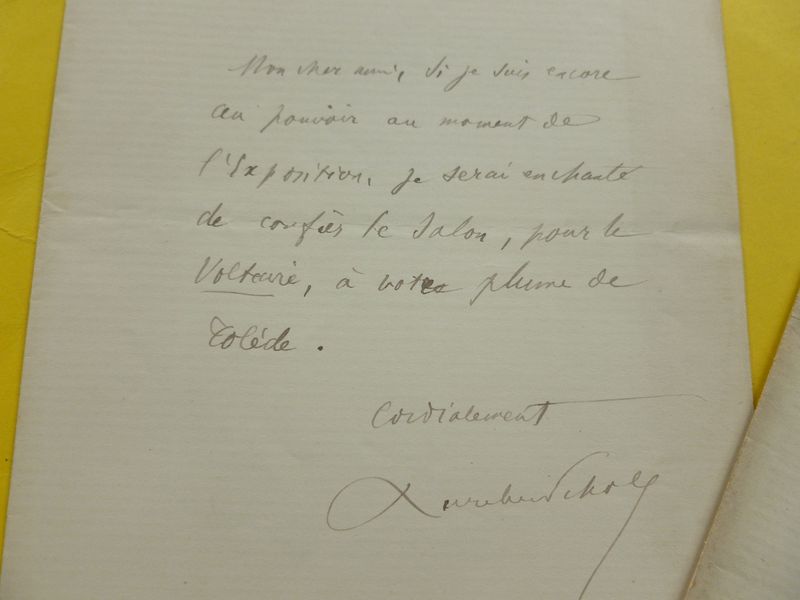 Mon cher ami, si je suis encore
au pouvoir au moment de
l'Exposition, je serai enchanté
de confier le Salon, pour le
Voltaire, à votre plume de
Tolède.
Cordialement
Aurélien Scholl